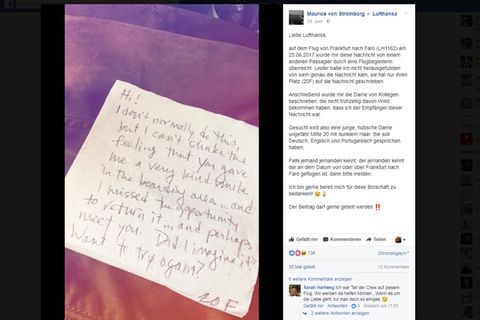 Hi!
I don't normally do this,
but I can't shake the
feeling that you gave
me a very kind smile
in the boarding area...and
I missed the opportunity
to return it...and perhaps
meet you. Did I imagine it?
Want to try again?
20F
Maurice von Strömborg ▸ Lufthansa
Liebe Lufthansa,
auf dem Flug von Frankfurt nach Faro (LH1162) am
25.06.2017 wurde mir diese Nachricht von einem
anderen Passagier durch eine Flugbegleiterin
überreicht. Leider habe ich nicht herausgefunden
von wem genau die Nachricht kam, sie hat nur ihren
Platz (20F) auf die Nachricht geschrieben.
Anschließend wurde mir die Dame von Kollegen
beschrieben, die nicht frühzeitig davon Wind
bekommen haben, dass ich der Empfänger dieser
Nachricht war.
Gesucht wird also eine junge, hübsche Dame
ungefähr Mitte 20 mit dunklem Haar. Sie soll
Deutsch, Englisch und Portugiesisch gesprochen
haben.
Falls jemand jemanden kennt, der jemanden kennt
der an dem Datum von oder über Frankfurt nach
Faro geflogen ist, dann bitte melden.
Ich bin gerne bereit mich für diese Botschaft zu
bedanken!
Der Beitrag darf gerne geteilt werden
Gefällt mir Kommentieren Teilen
134 Chronologisch
39 Mal geteilt 12 Kommentare
6 weitere Kommentare anzeigen
Sarah Hartweg Ich war Teil der Crew auf diesem
Flug. Wir werden da helfen können...Wenn es um
die Liebe geht, tut man doch so einiges
Gefällt mir · Antworten · 4 · Gestern um 11:01
2 weitere Antworten anzeigen